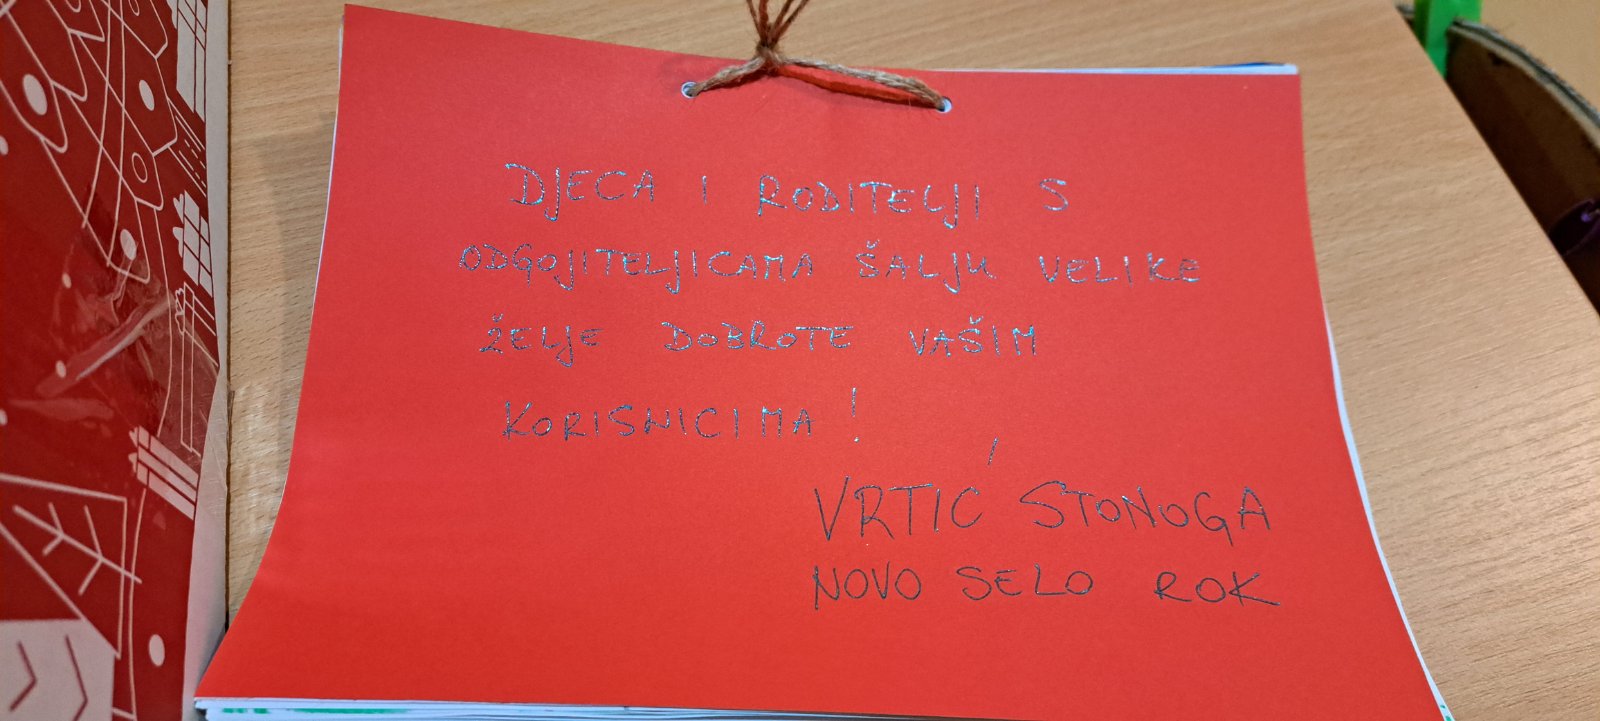 DJECA I RODITELJI S
ODGOJITELJICAMA ŠALJU VELIKE
ŽELJE DOBROTE VAŠIM
KORISNICIMA!
VRTIĆ STONOGA
NOVO SELO ROK